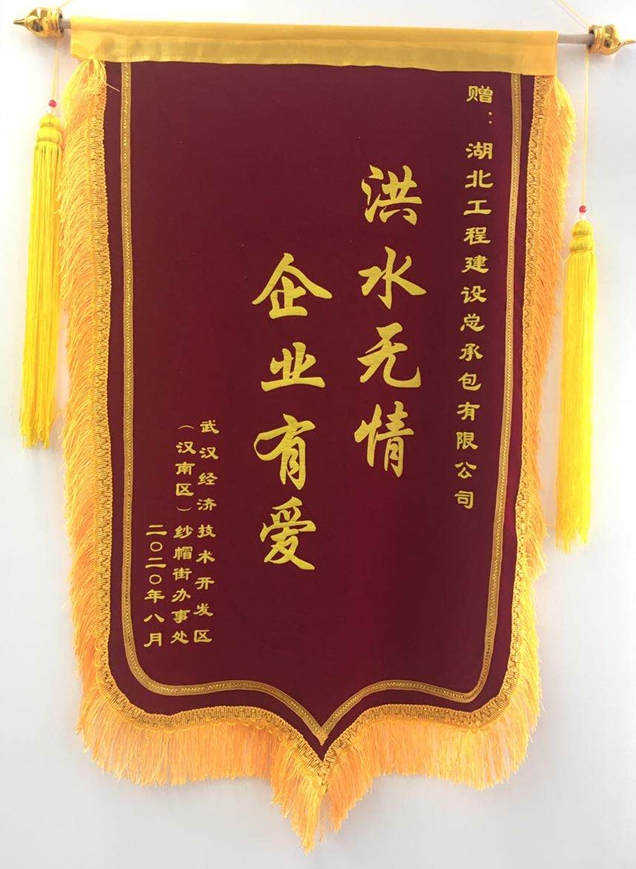 赠：湖北工程建设总承包有限公司
洪水无情
企业有爱
武汉经济技术开发区
（汉南区）纱帽街办事处
二〇二〇年八月